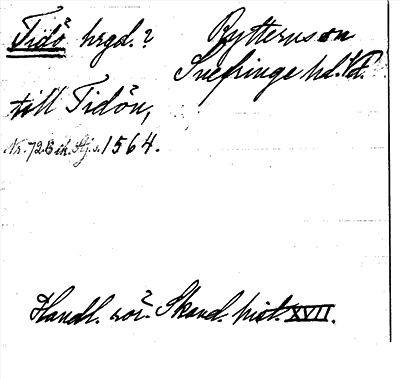 Tidö hrgd.? Rytterns sn
Snefringe hd. Vtl.
till Tidön,
Nr. 72. B ih. Hj. s. 1564.
Handl. rör. Skand. hist. XVII.